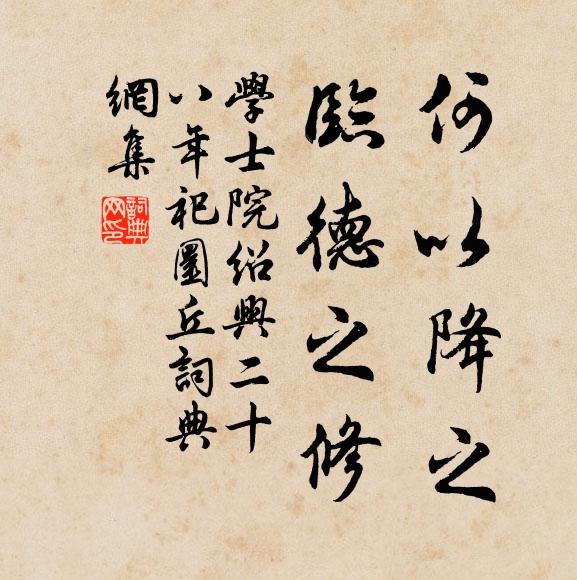 何以降之
臨德之修
學士院紹興二十
八年祀圜丘詞典
網集
詞典
网印